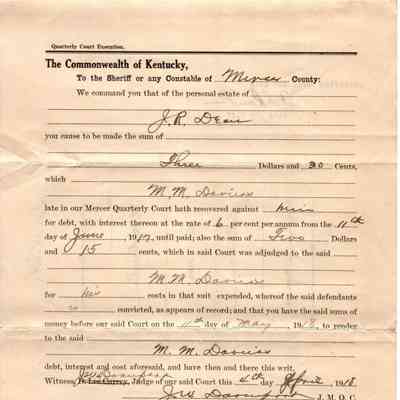 Quarterly Court Execution.
The Commonwealth of Kentucky,
To the Sheriff or any Constable of Mercer County:
We command you that of the personal estate of
J. R. Dean
you cause to be made the sum of
Three Dollars and 30 Cents,
which
M. M. Daviess
late in our Mercer Quarterly Court hath recovered against him
for debt, with interest thereon at the rate of 6 per cent per annum from the 11th
day of June, 1917, until paid; also the sum of Two Dollars
and 15 cents, which in said Court was adjudged to the said
M. M. Daviess
for his costs in that suit expended, whereof the said defendants
is convicted, as appears of record; and that you have the said sums of
money before our said Court on the 11th day of May, 1918, to render
to the said
M. M. Daviess
debt, interest and cost aforesaid, and have then and there this writ.
Witness, Judge of our said Court this 4th day April 1918
J. M. Q. C.